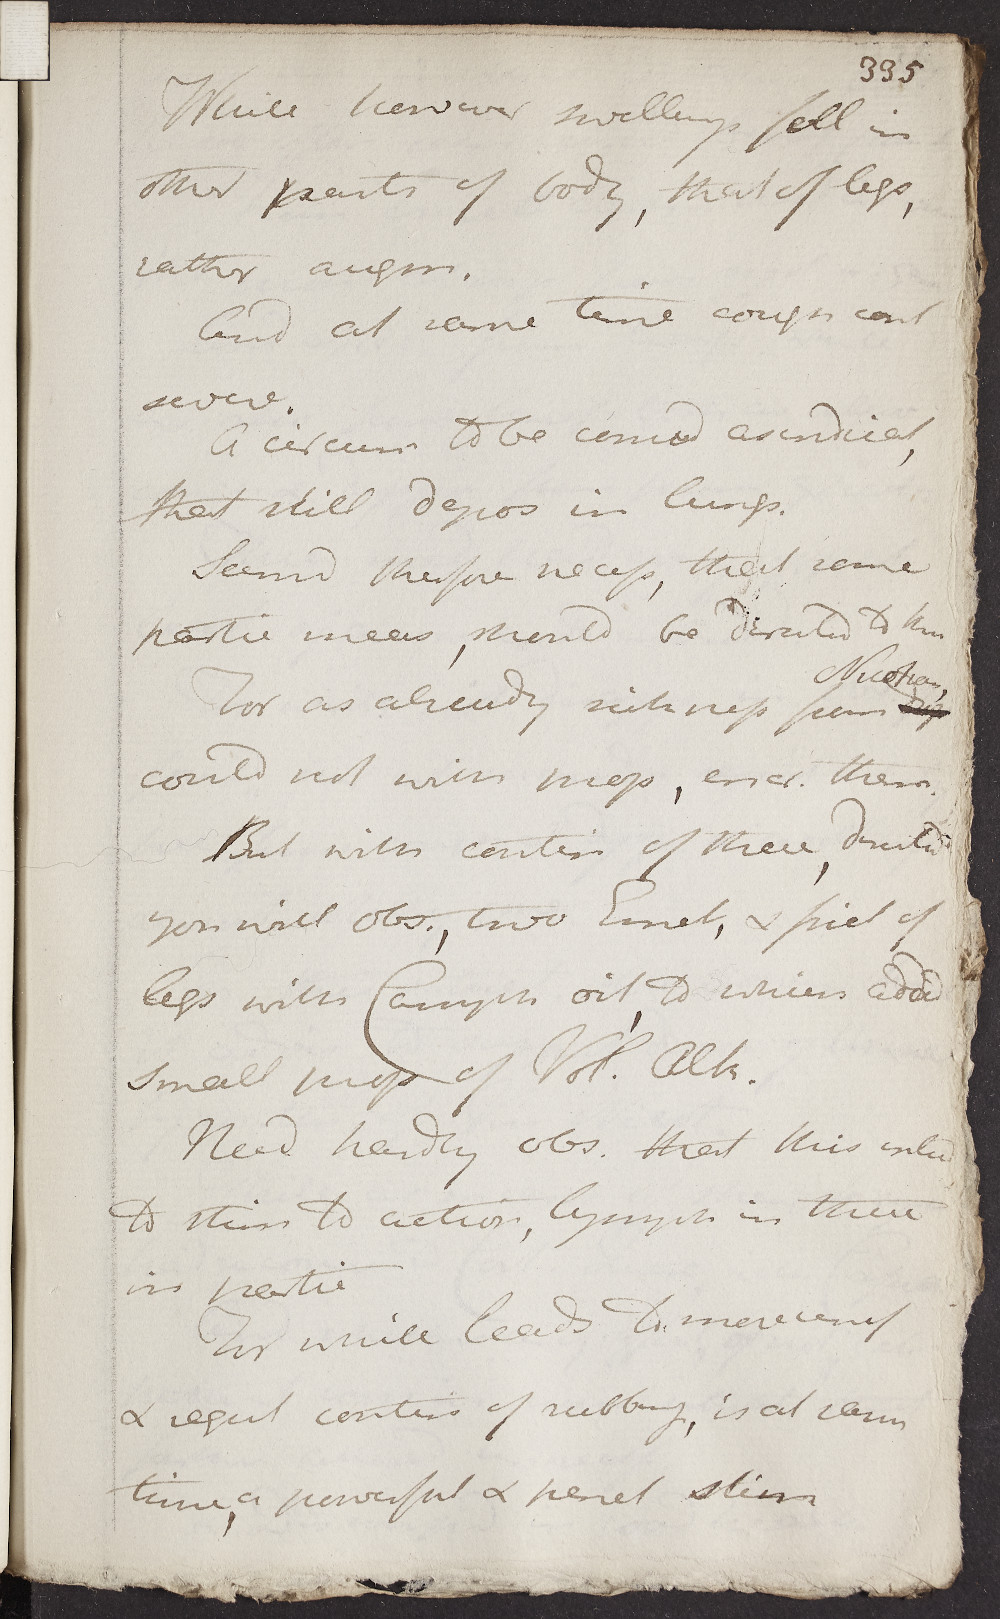 335
While however swellings fell in
other parts of body, that of legs,
rather augm.
And at same time cough cont
severe.
A circum to be consid as indicat,
that still depos in lungs.
Seemd therefore necess, that some
partic meas, should be directed to
For as already sickness from
Nicotian,
could not with prop, encr. them.
But with contin of these, directed
you will obs., two Emet, & frict of
legs with Camph oil, to which added
small prop of Vol. Alk.
Need hardly obs. that this
to stim to action, lymph in these
in partic
For while leads to more
& regul contin of rubbing, is at same
time, a powerful & penet stim